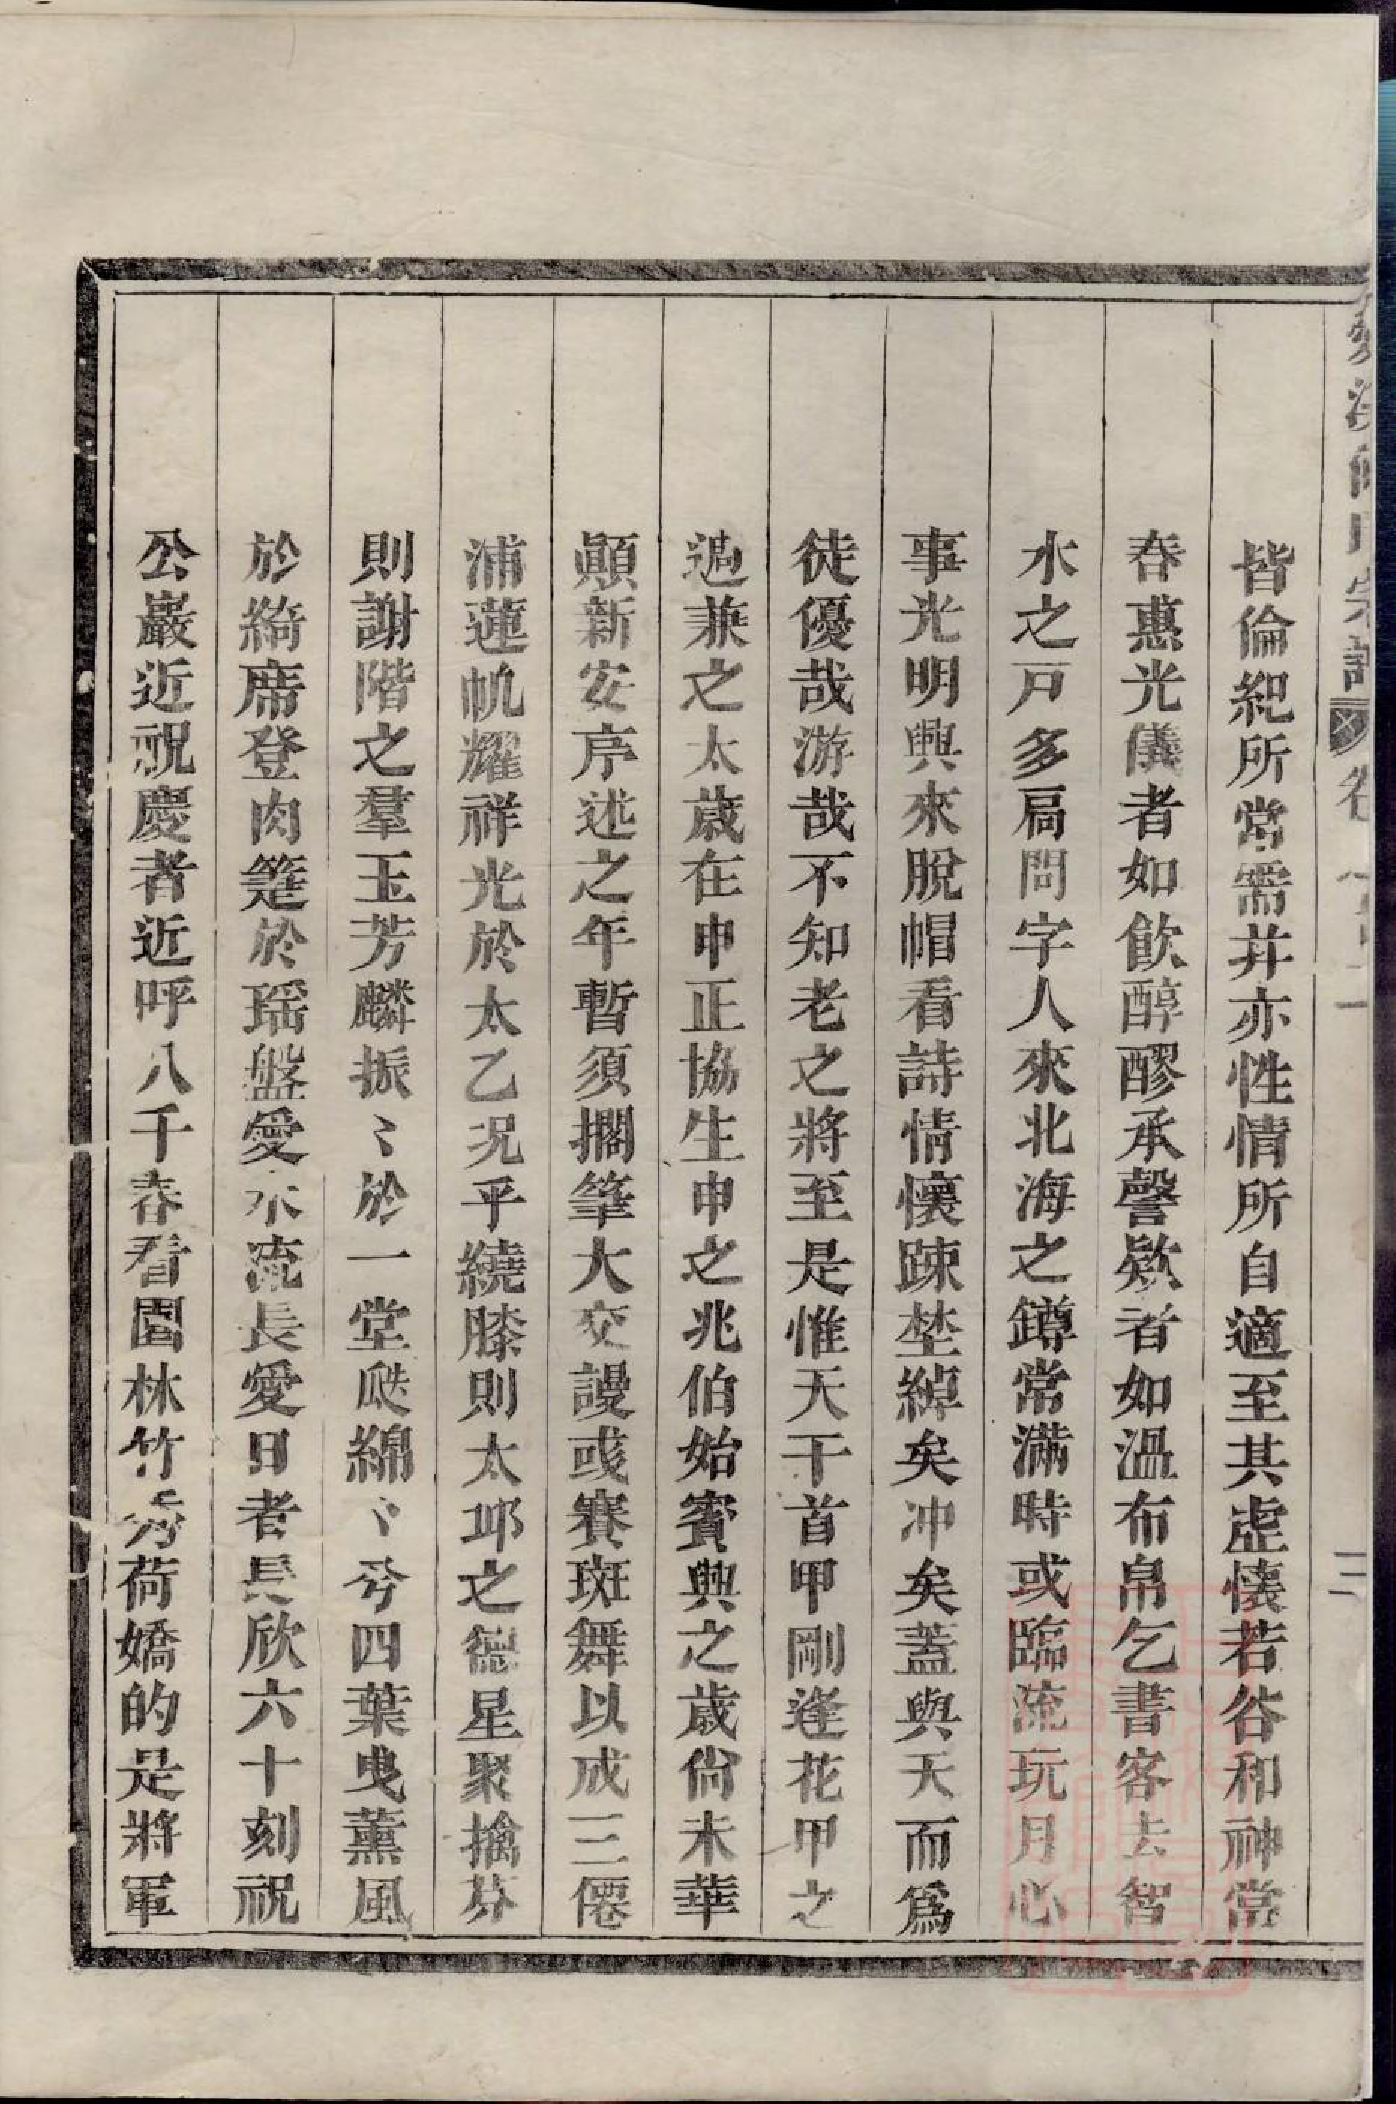 宗譜 卷 三
皆倫紀所常需并亦性情所自適至其虛懷若谷和神當
春惠光儀者如飲醇醪承謦欬者如溫布帛乞書客去智
水之戸多扃問字人來北海之鐏常滿時或臨流玩月心
事光明興來脫帽看詩情懷踈埜綽矣冲矣蓋與天而爲
徒優哉游哉不知老之將至是惟天干首甲剛逢花甲之
過兼之太歲在申正協生申之兆伯始賓興之歲尙未華
顚新安序述之年暫須擱筆大交謾彧賽斑舞以成三僊
浦蓮帆耀祥光於太乙况乎繞膝則太邱之德星聚擒芬
則謝階之羣玉芳麟振〻於一堂瓞綿〻兮四葉曳薰風
於綺席登肉籩於瑶盤愛水流長愛日者長欣六十刻祝
公巖近祝慶者近呼八千春看園林竹秀荷嬌的是將軍